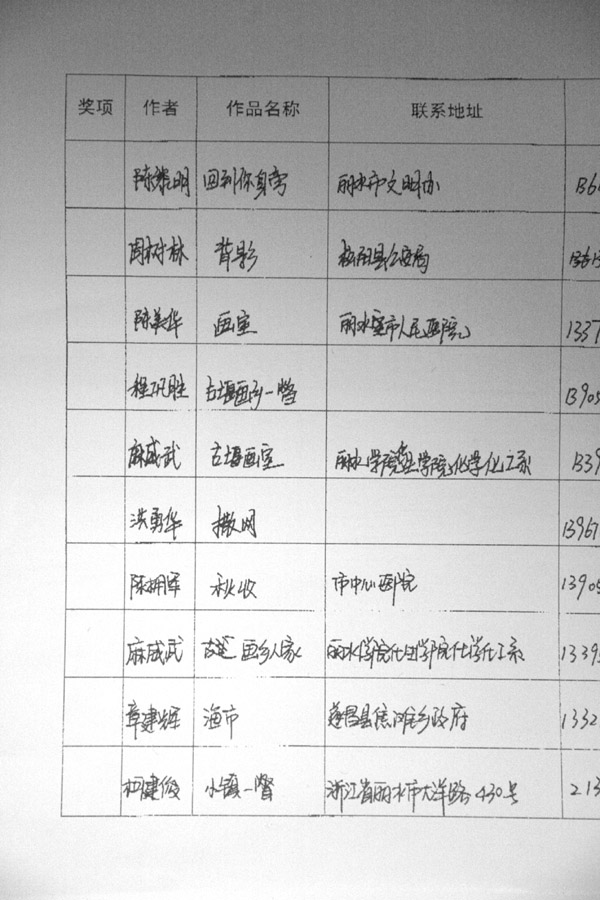 奖项 作者 作品名称 联系地址
陈 明 回到你身旁 丽水市文明办 136
周树林 背影 松阳县公安局
陈美华 画室 丽水 市人民医院 1337
程 胜 古堰画乡一瞥 1390
麻威武 古堰画室 丽水学院 学院化学化工系 1339
洪勇华 撒网 13967
陈拥军 秋收 市中心医院 1390
麻威武 古堰画乡人家 丽水学院 学院化学化工系 1339
章建辉 渔市 遂昌县焦滩乡政府 1332
建俊 小镇一瞥 浙江省丽水市大洋路430号 213